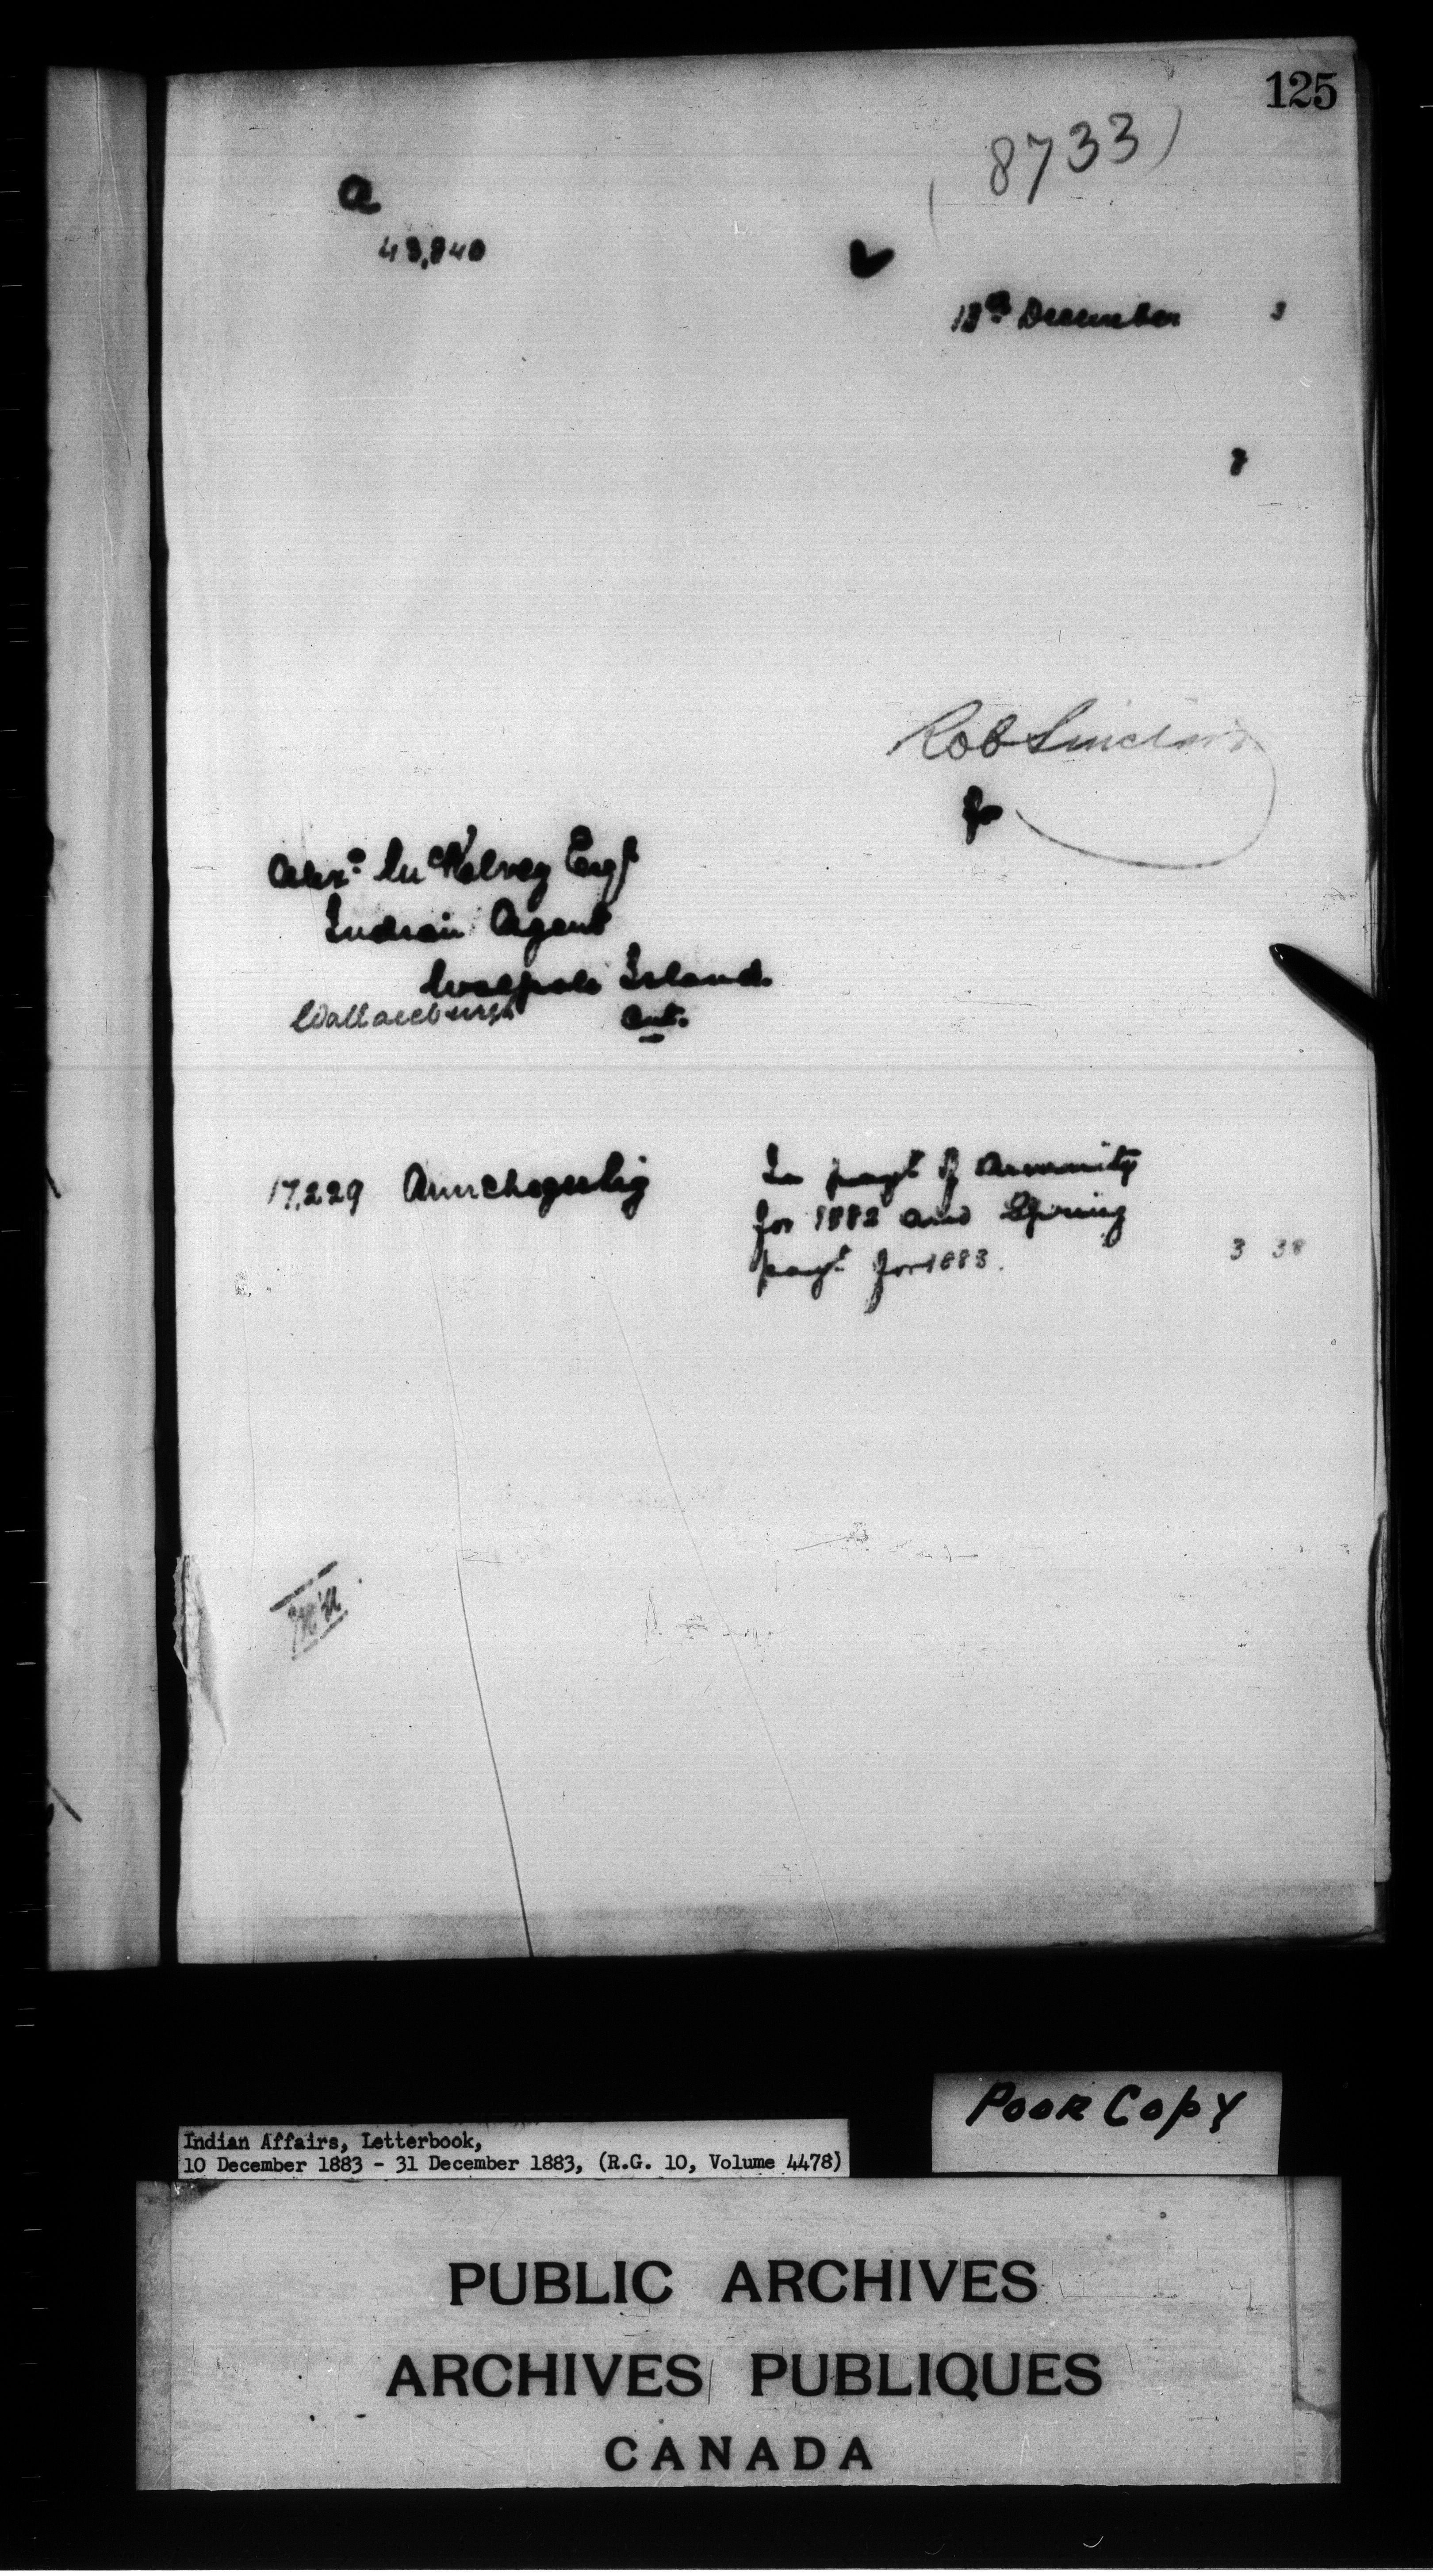 125
(8733)
a
43,840
13th December 3
7
Rob Sinclair
for
Alexr McKelvey Esqr
Indian Agent
Walpole Island
Wallaceburgh Ont.
17,229 In payt of Annuity
for 1882 and Spring
payt for 1883. 3 38
Poor Copy
Indian Affairs, Letterbook,
10 December 1883 - 31 December 1883, (R.G. 10, Volume 4478)
PUBLIC ARCHIVES
ARCHIVES PUBLIQUES
CANADA